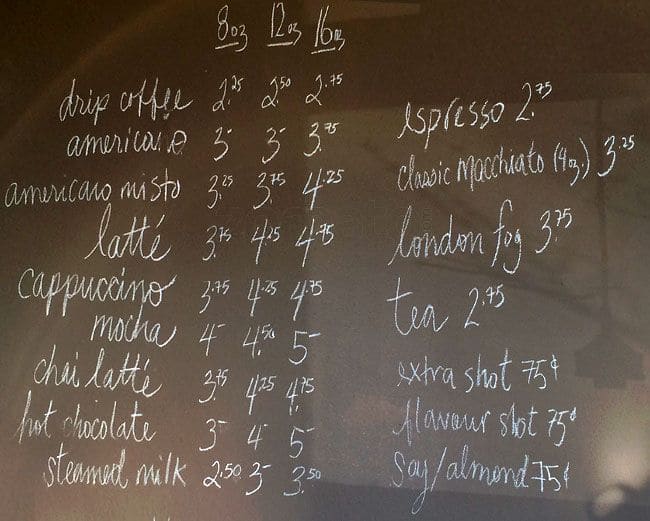 8oz 12oz 16oz
drip coffee 2.25 2.50 2.75
americano 3- 3- 3.75
americano misto 3.25 3.75 4.25
latté 3.75 4.25 4.75
cappuccino 3.75 4.25 4.75
mocha 4- 4.50 5-
chai latté 3.75 4.25 4.75
hot chocolate 3- 4- 5-
steamed milk 2.50 3- 3.50
espresso 2.75
classic macchiato (4oz.) 3.25
london fog 3.75
tea 2.75
extra shot 75¢
flavour shot 75¢
soy/almond 75¢